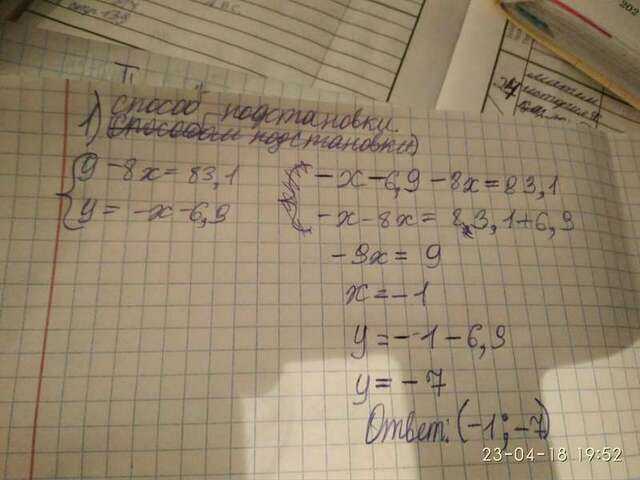 202
1) способ подстановки.
Способом подстановки)
y - 8x = 83,1
y = -x - 6,9
-x - 6,9 - 8x = 83,1
-x - 8x = 83,1 + 6,9
-9x = 9
x = -1
y = --1 - 6,9
y = -7
Ответ: (-1; -7)
23-04-18 19:52